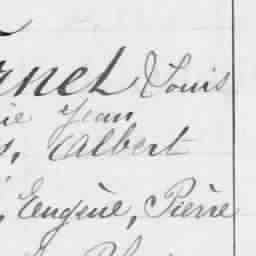 rnel Louis
ie Jean
s, Albert
, Eugène, Pierre